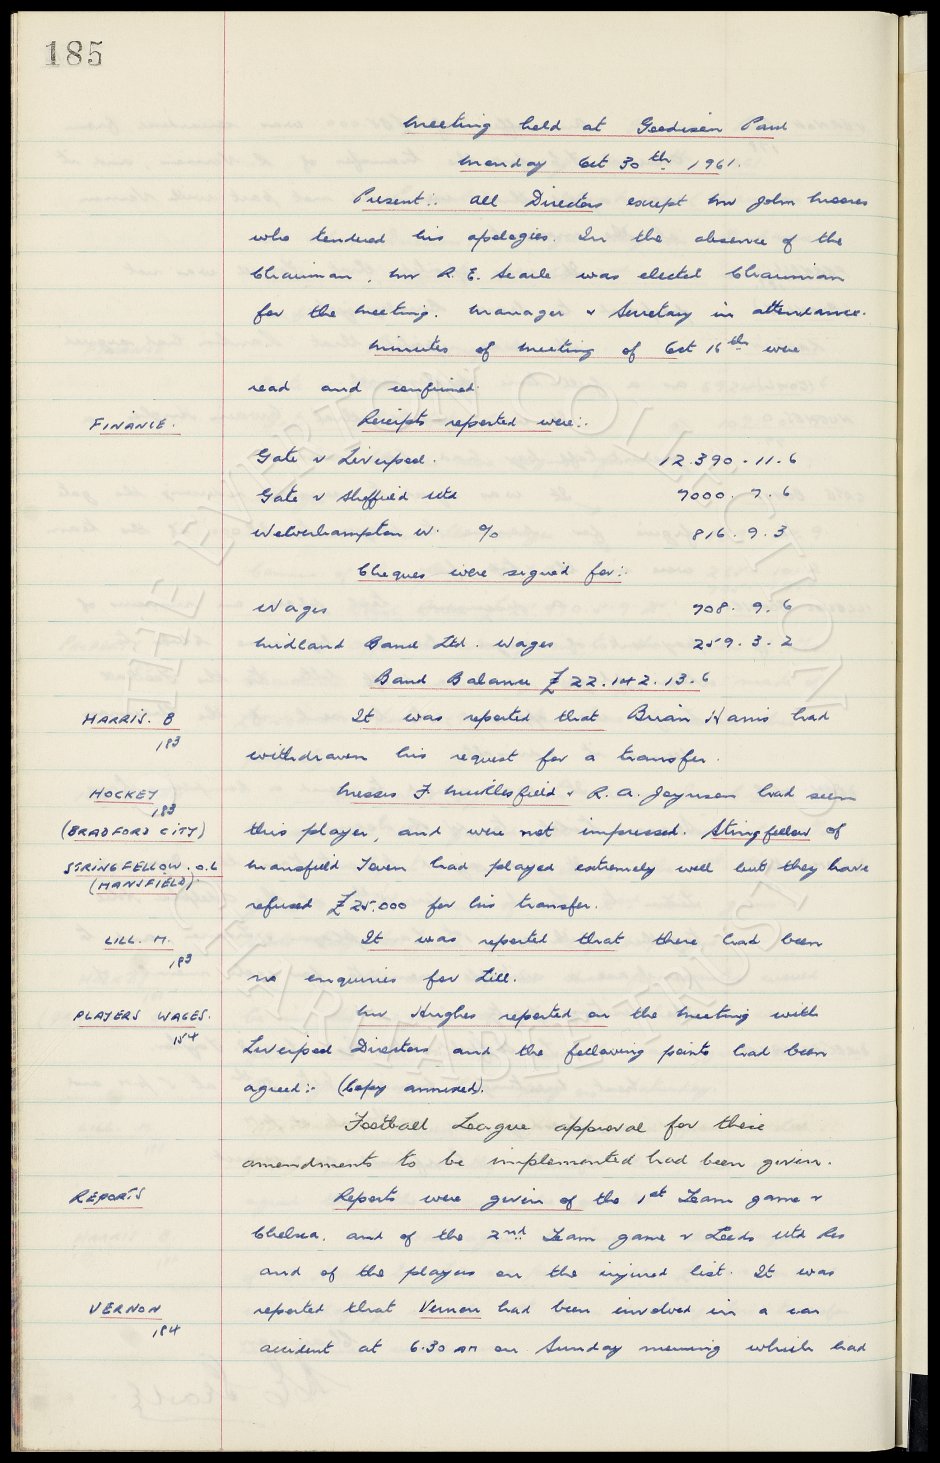 185
Meeting held at Goodison Park
Monday Oct 30th 1961.
Present:. All Directors except Mr John Moores
who tendered his apologies. In the absence of the
Chairman, Mr R. E. Searle was elected Chairman
for the meeting. Manager & Secretary in attendance.
Minutes of meeting of Oct 16th were
read and confirmed.
FINANCE. Receipts reported were:.
Gate v Liverpool. 12.390.11.6
Gate v Sheffield Utd 7000.7.6
Wolverhampton W. % 816.9.3
Cheques were signed for:.
Wages 708.9.6
Midland Bank Ltd. Wages 259.3.2
Bank Balance £22.142.13.6
HARRIS. B It was reported that Brian Harris had
183
withdrawn his request for a transfer.
HOCKEY Messrs F. Micklesfield & R. A. Joynson had seen
183
(BRADFORD CITY) this player, and were not impressed. Stringfellow of
STRINGFELLOW. O.L Mansfield Town had played extremely well but they have
(MANSFIELD).
refused £25.000 for his transfer.
LILL. M. It was reported that there had been
183
no enquiries for Lill.
PLAYERS WAGES. Mr Hughes reported on the meeting with
154
Liverpool Directors and the following points had been
agreed:- (Copy annexed).
Football League approval for these
amendments to be implemented had been given.
REPORTS Reports were given of the 1st Team game v
Chelsea. and of the 2nd Team game v Leeds Utd Res
and of the players on the injured list. It was
VERNON reported that Vernon had been involved in a car
184
accident at 6.30 am on Sunday morning which had
THE EVERTON COLLECTION
CHARITABLE TRUST